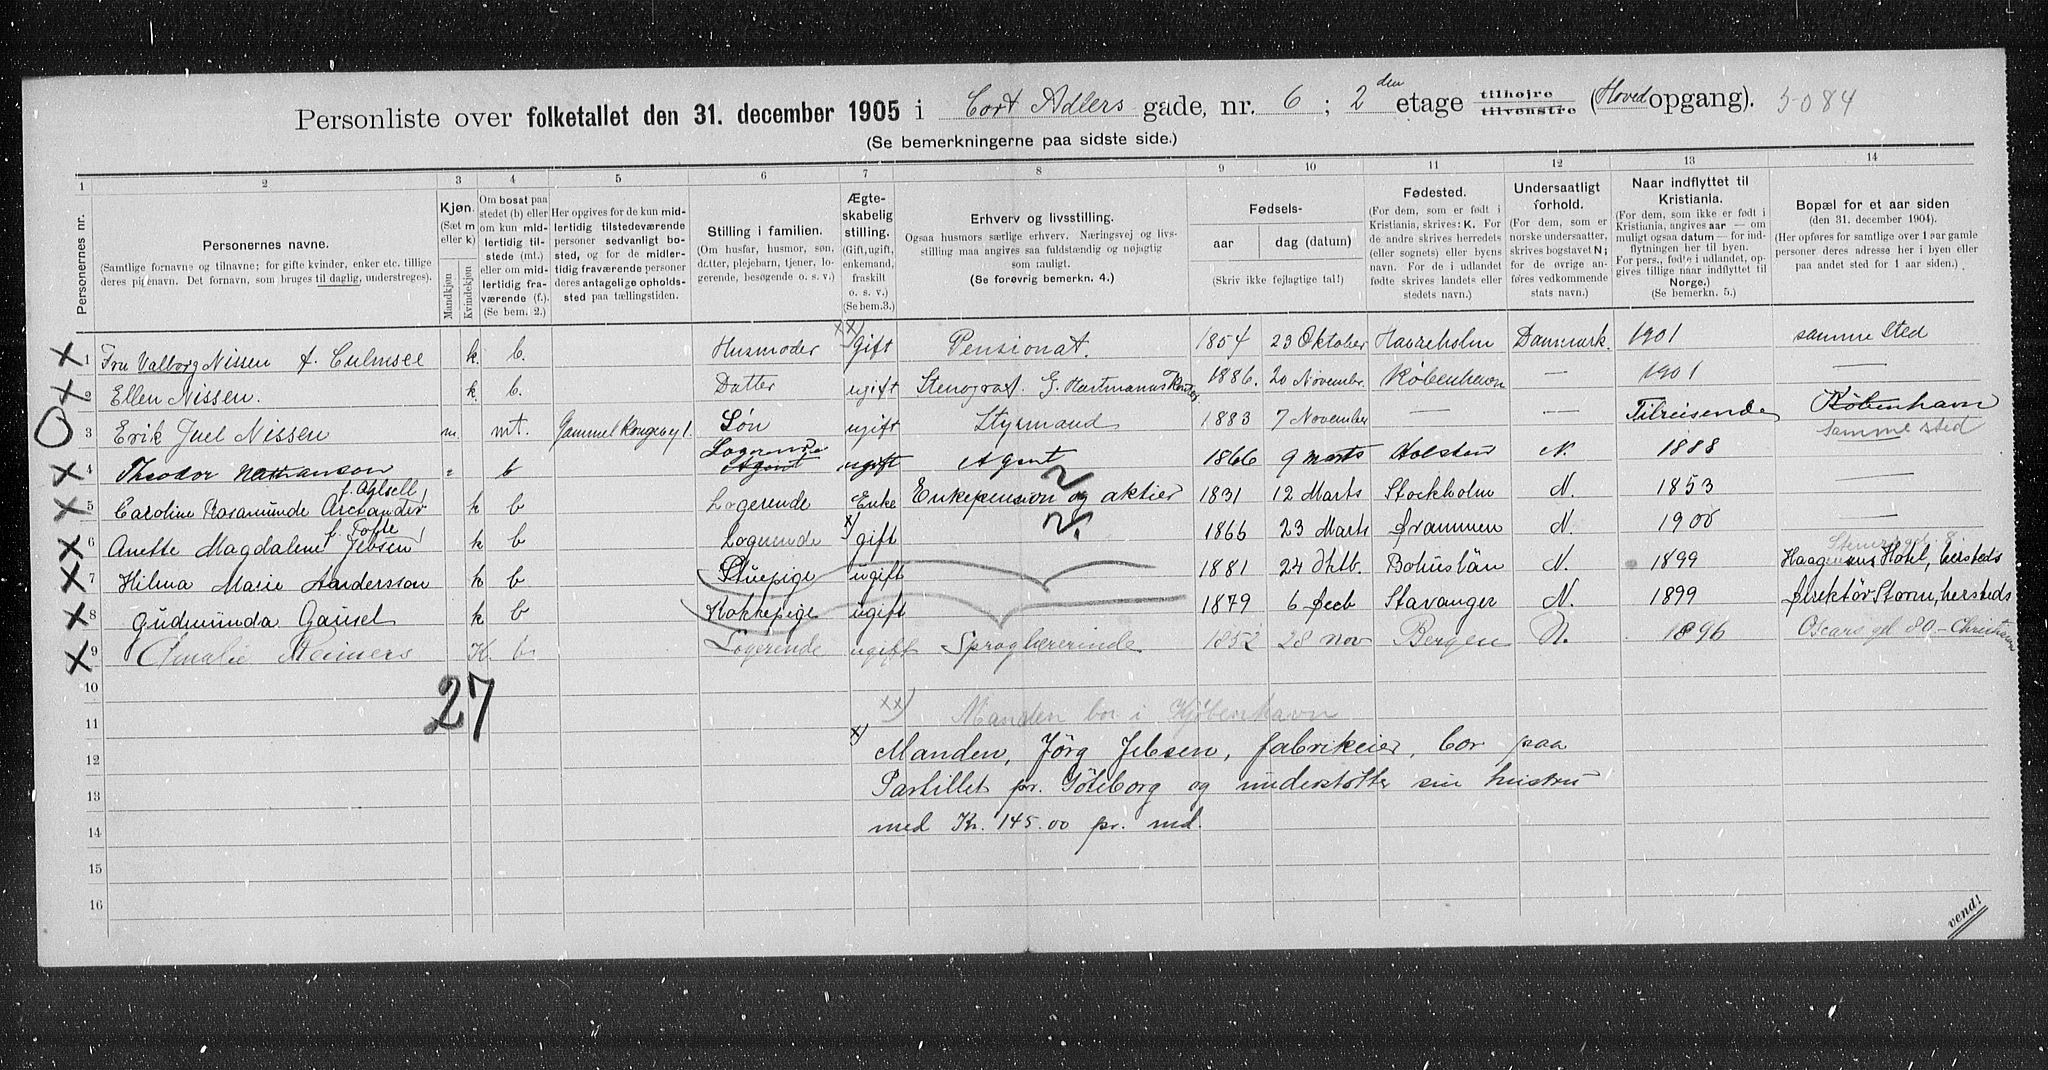 Personliste over folketallet den 31. december 1905 i Cort Adlers gade, nr. 6 ; 2 den etage tilhøjre tilvenstre (Hoved opgang). 5084
(Se bemerkningerne paa sidste side.)
1 2 3 4 5 6 7 8 9 10 11 12 13 14
Personernes nr.
Personernes navne.
(Samtlige fornavne og tilnavne; for gifte kvinder, enker etc. tillige deres pigenavn. Det fornavn, som bruges til daglig, understreges).
Kjøn.
(Sæt m eller k)
Mandkjøn
Kvindekjøn
Om bosat paa stedet (b) eller om kun midlertidig tilstede (mt.) eller om midlertidig fraværende (f.). (Se bem. 2.)
Her opgives for de kun midlertidig tilstedeværende personer sedvanlig bosted, og for de midlertidig fraværende personer deres antagelige opholdssted paa tællingstiden.
Stilling i familien.
(Om husfar, husmor, søn, datter, plejebarn, tjener, logerende, besøgende o. s. v.)
Ægteskabelig stilling.
(Gift, ugift, enkemand, fraskilt o. s. v.)
(Se bem. 3.)
Erhverv og livsstilling.
Ogsaa husmors særlige erhverv. Næringsvej og livsstilling maa angives saa fuldstændig og nøjagtig som muligt.
(Se forøvrig bemerkn. 4.)
Fødsels-
aar dag (datum)
(Skriv ikke fejlagtige tal!)
Fødested.
(For dem, som er født i Kristiania, skrives: K. For de andre skrives herredets (eller sognets) eller byens navn. For de i udlandet fødte skrives landets eller stedets navn.)
Undersaatligt forhold.
(For dem, som er norske undersaatter, skrives bogstavet N; for de øvrige anføres vedkommende stats navn.)
Naar indflyttet til Kristiania.
(For dem, som ikke er født i Kristiania, angives aar — om muligt ogsaa datum — for indflytningen her til byen. For pers., fødte i udlandet, opgives tillige naar indflyttet til Norge.)
(Se bemerkn. 5.)
Bopæl for et aar siden
(den 31. december 1904).
(Her opføres for samtlige over 1 aar gamle personer deres adresse her i byen eller paa andet sted for 1 aar siden.)
1 Fru Valborg Nissen f. Culmsee k. b. Husmoder xx) gift Pensionat. 1854 23 Oktober Havreholm Danmark. 1901 samme Sted
2 Ellen Nissen. k. b. Datter ugift Stenograf. G. Hartmanns Kontor 1886. 20 November. København — 1901 —
3 Erik Juel Nissen m. mt. Gammel Kongevej 1. Søn ugift Styrmand 1883 7 November — — Tilreisende København
samme sted
4 Theodor Nathanson b Logerende Agent ugift Agent 1866 9 marts Holsten N. 1888 —
5 Caroline Rosamunde f. Ahlsell k b Logerende Enke Enkepension og aktier 1831 12 Marts Stockholm N. 1853 —
6 Anette Magdalene Jebsen f. Tofte k b Logerende x) gift 1866 23 Marts Drammen N. —
7 Hilma Marie Andersson k b Stuepige ugift 1881 24 Bohuslän N. 1899 Hotel, hersteds
8 Gudmunda Gausel k b Kokkepige ugift 1879 6 Feb Stavanger N. 1899 Direktör Storm, hersteds
9 Amalie Reimers K b Logerende ugift Sproglærerinde 1852 28 nov Bergen N. 1896 Oscars gd 80 - Christiania
10
27
11 xx) Manden bor i Kjøbenhavn
12 x) Manden, Jörg Jebsen, fabrikeier, bor paa
13 Partillet pr. Göteborg og understøtter sin hustru
14 med Kr. 145.00 pr. md.
15
16
vend!